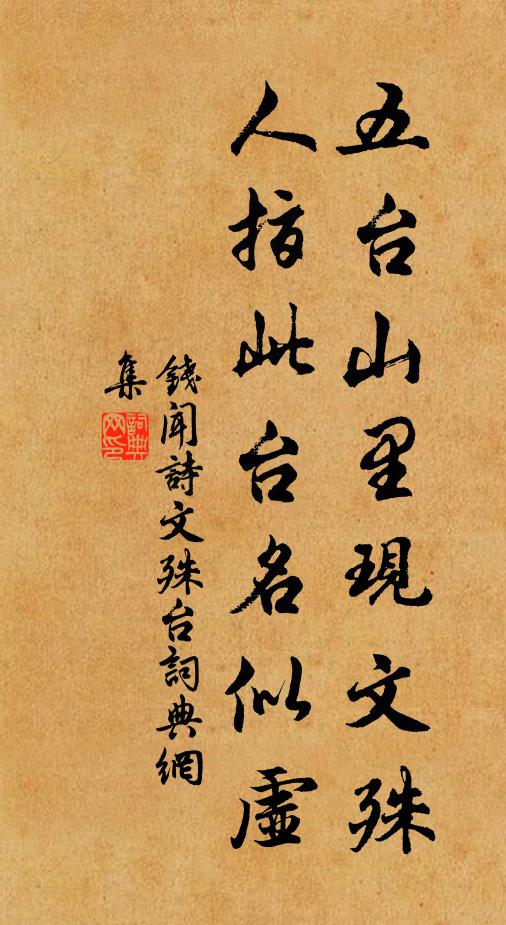 五台山里現文殊
人指此台名似虛
錢聞詩文殊台詞典網
集
詞典網印